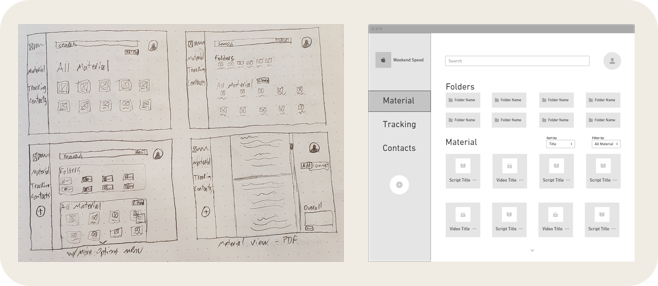 Search
All Material
Material
Tracking
Contacts
Search
Folders
All Material
Material
Tracking
Contacts
Search
Folders
All Material
Material
Tracking
Contacts
w/ more options menu
Material
Tracking
Contacts
Overall
Material View - PDF
Weekend Speed
Search
Material
Tracking
Contacts
Folders
Folder Name Folder Name Folder Name Folder Name
Folder Name Folder Name Folder Name Folder Name
Material
Sort by Filter by
Title All Material
Script Title Video Title Script Title Script Title
Video Title Script Title Video Title Script Title